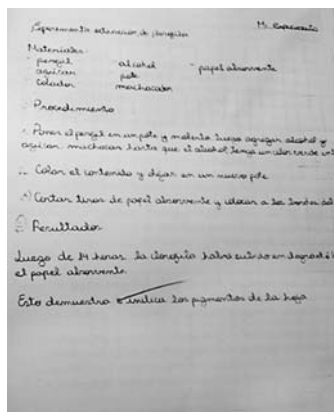 Experimento extracción de clorofila
Materiales:
- perejil - alcohol - papel absorvente
azúcar pote
colador machacador
Procedimiento
Poner el perejil en un pote y molerlo luego agregar alcohol y
azúcar machacar hasta que el alcohol tenga un color verde
Colar el contenido y dejar en un nuevo pote
Cortar tiras de papel absorvente y colocar a los bordes del
Resultados
Luego de 24 horas la clorofila habrá subido en
el papel absorvente.
Esto demuestra e indica los pigmentos de la hoja